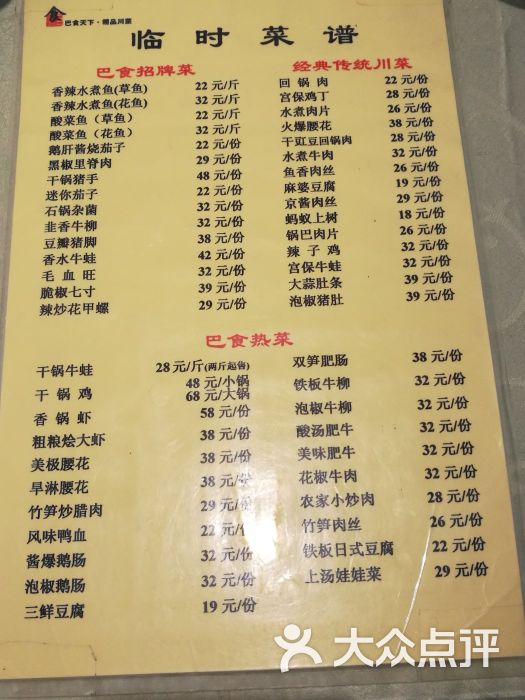 食
巴食天下·精品川菜
临时菜谱
巴食招牌菜
香辣水煮鱼(草鱼) 22 元/斤
香辣水煮鱼(花鱼) 32 元/斤
酸菜鱼（草鱼） 22 元/斤
酸菜鱼（花鱼） 32 元/斤
鹅肝酱烧茄子 22 元/份
黑椒里脊肉 29 元/份
干锅猪手 48 元/份
迷你茄子 22 元/份
石锅杂菌 32 元/份
韭香牛柳 32 元/份
豆瓣猪脚 38 元/份
香水牛蛙 42 元/份
毛血旺 32 元/份
脆椒七寸 39 元/份
辣炒花甲螺 29 元/份
经典传统川菜
回锅肉 22 元/份
宫保鸡丁 28 元/份
水煮肉片 26 元/份
火爆腰花 38 元/份
干豇豆回锅肉 28 元/份
水煮牛肉 32 元/份
鱼香肉丝 26 元/份
麻婆豆腐 19 元/份
京酱肉丝 29 元/份
蚂蚁上树 18 元/份
锅巴肉片 26 元/份
辣子鸡 32 元/份
宫保牛蛙 32 元/份
大蒜肚条 39 元/份
泡椒猪肚 39 元/份
巴食热菜
干锅牛蛙 28 元/斤(两斤起售)
48 元/小锅
干锅鸡 68 元/大锅
香锅虾 58 元/份
粗粮烩大虾 38 元/份
美极腰花 38 元/份
旱淋腰花 38 元/份
竹笋炒腊肉 29 元/份
风味鸭血 22 元/份
酱爆鹅肠 32 元/份
泡椒鹅肠 32 元/份
三鲜豆腐 19 元/份
双笋肥肠 38 元/份
铁板牛柳 32 元/份
泡椒牛柳 32 元/份
酸汤肥牛 32 元/份
美味肥牛 32 元/份
花椒牛肉 32 元/份
农家小炒肉 28 元/份
竹笋肉丝 26 元/份
铁板日式豆腐 22 元/份
上汤娃娃菜 29 元/份
大众点评